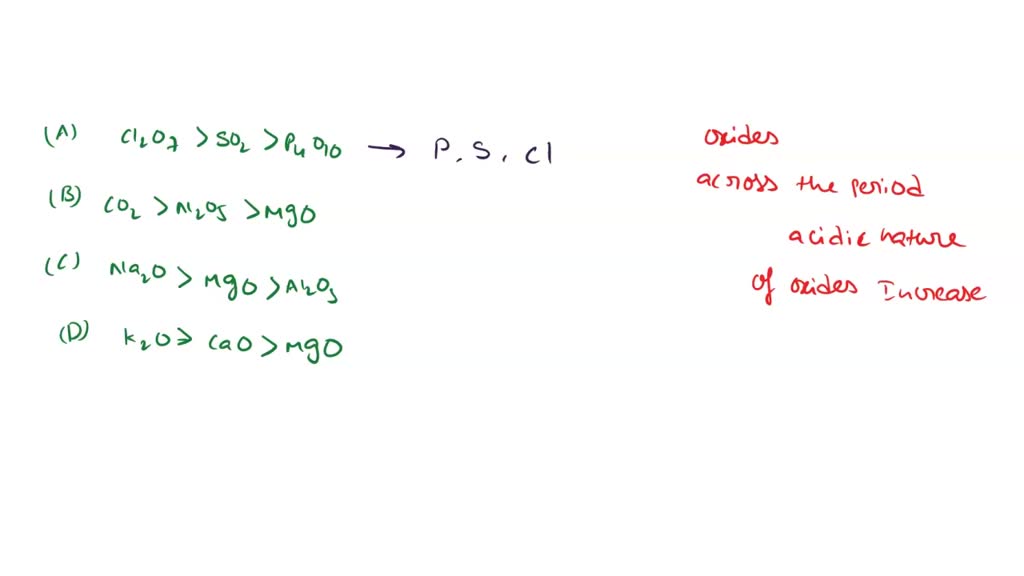 (A) Cl₂O₇ > SO₂ > P₄O₁₀ → P, S, Cl
(B) CO₂ > N₂O₅ > MgO
(C) Na₂O > MgO > Al₂O₃
(D) K₂O > CaO > MgO
oxides
across the period
acidic nature
of oxides Increase